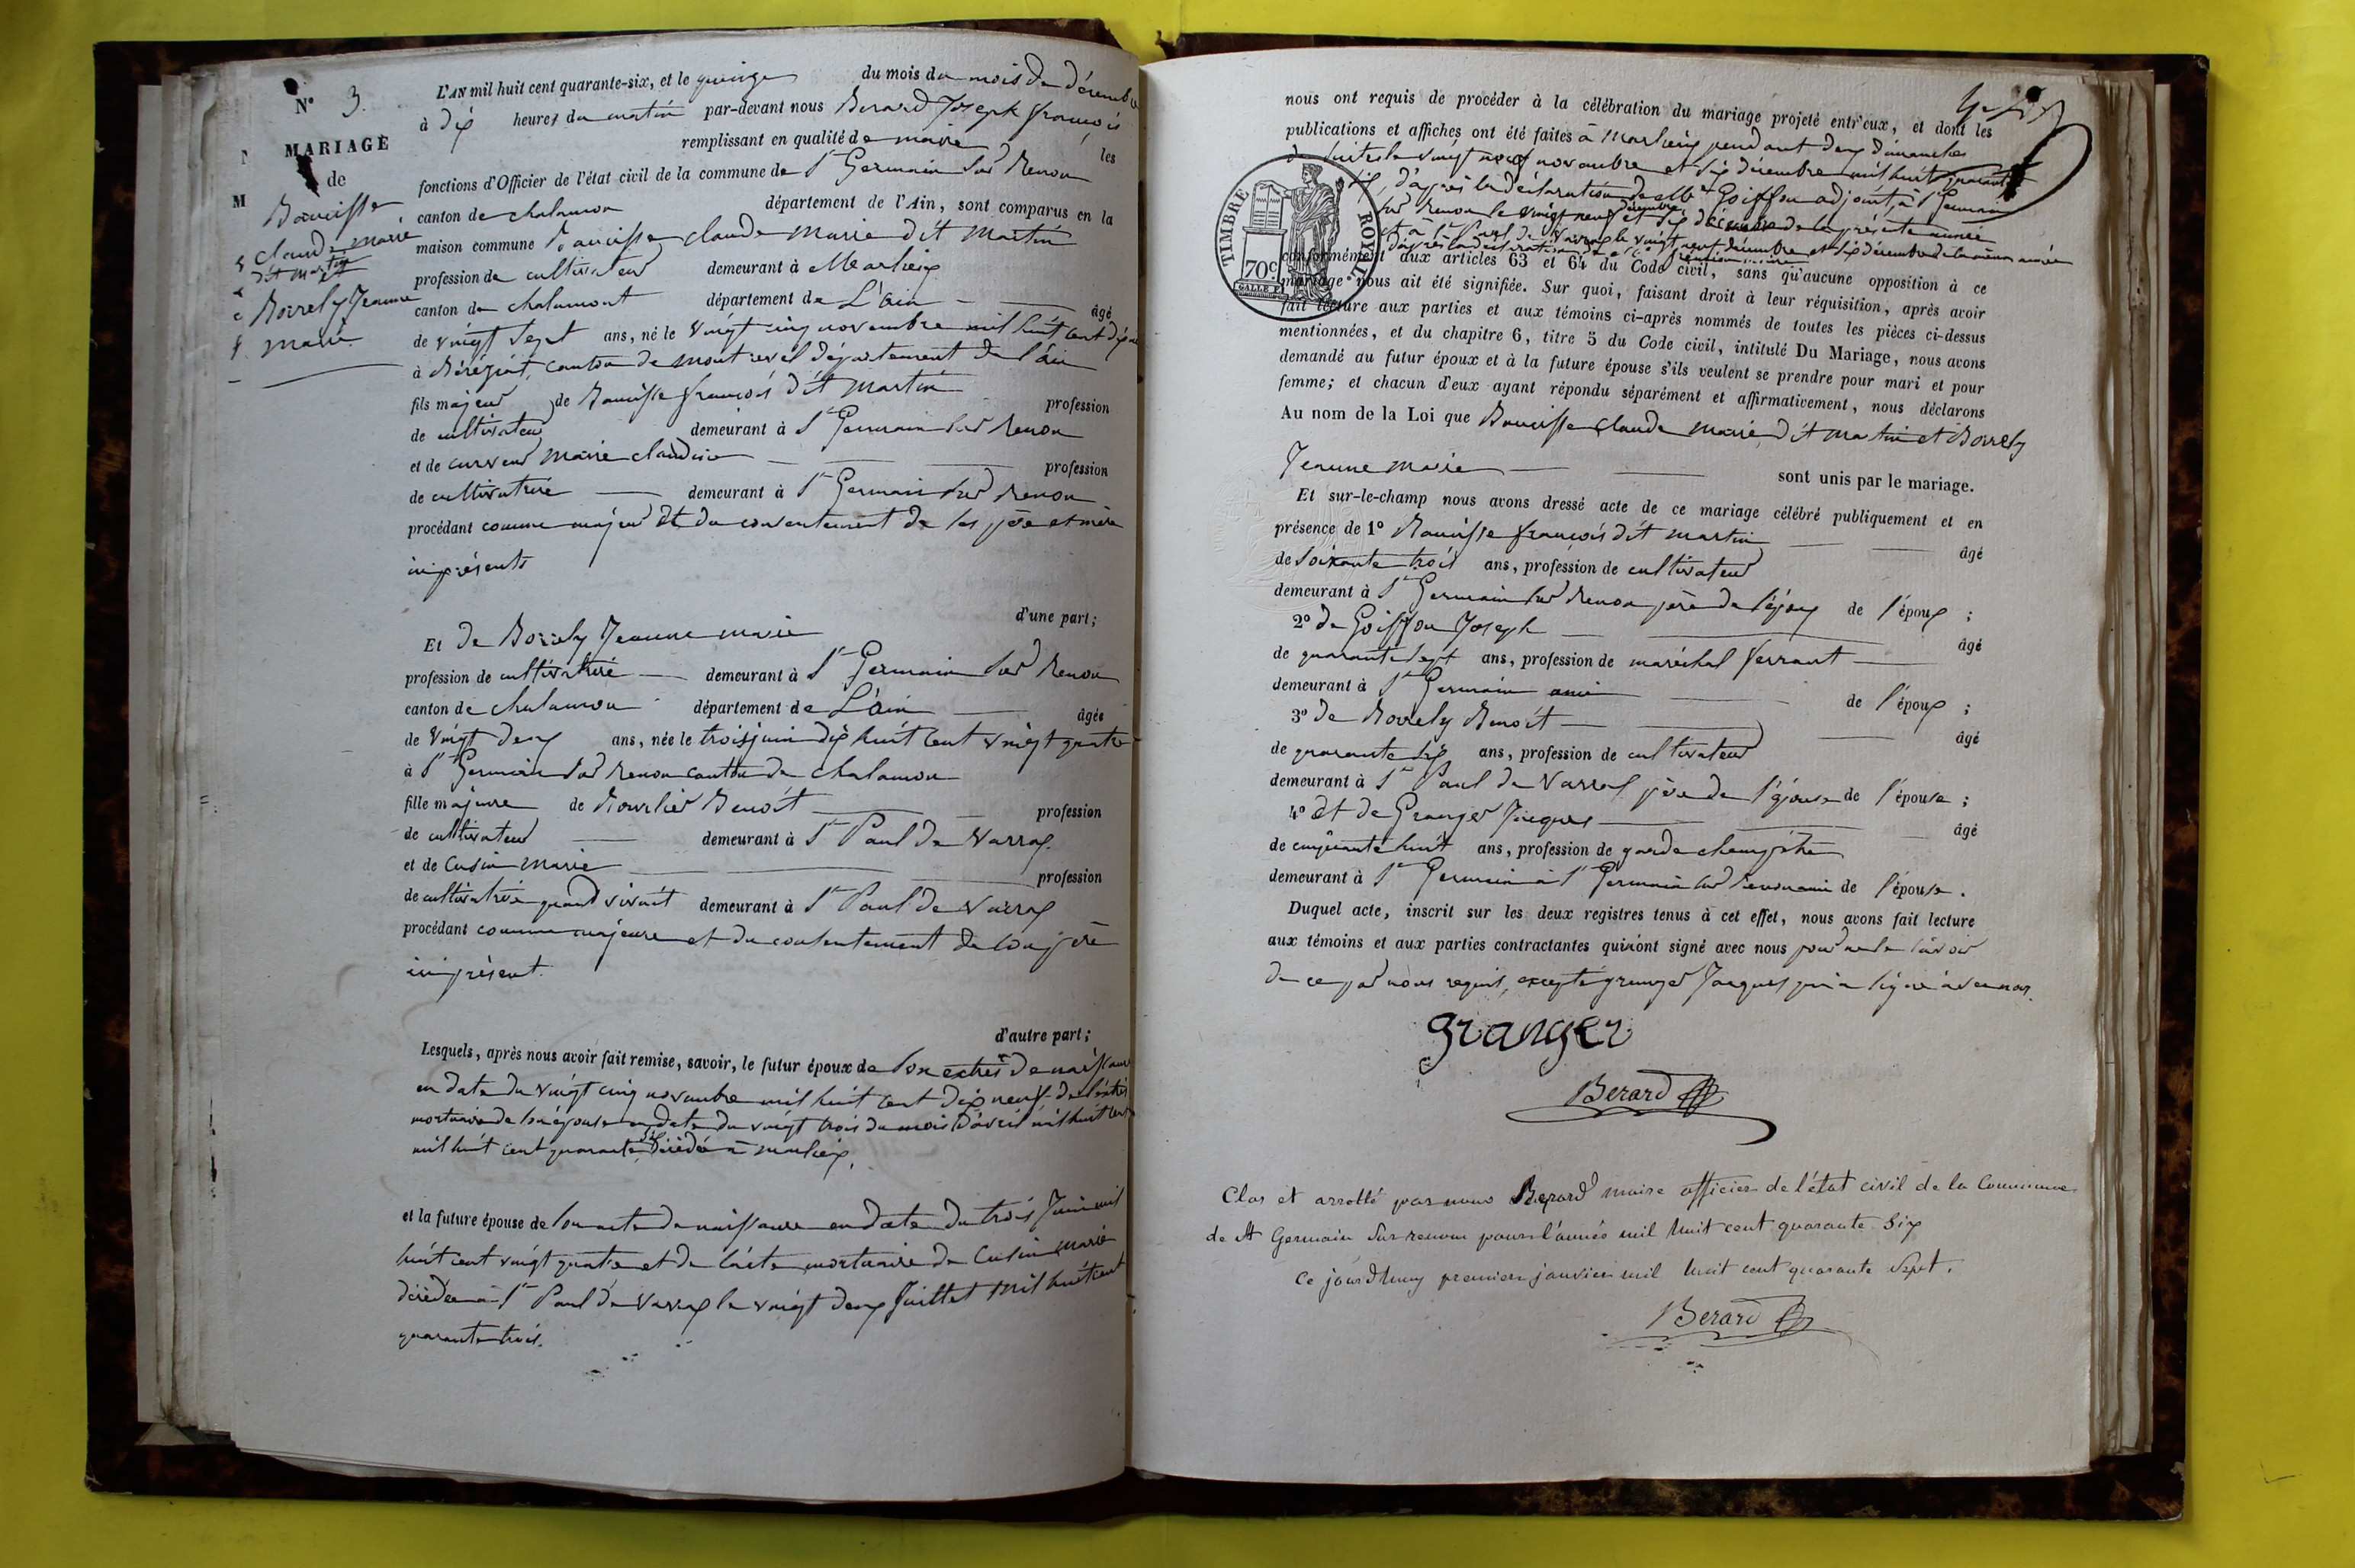 N° 3.
MARIAGE
de
claude marie
dit Martin
Jeanne
marie
L'AN mil huit cent quarante-six, et le quinze du mois du mois de décembre
à dix heures du matin par-devant nous Berard Joseph françois
remplissant en qualité de maire les
fonctions d'Officier de l'état civil de la commune de St Germain sur Renon
canton de chalamon département de l'Ain, sont comparus en la
maison commune claude marie dit Martin
profession de cultivateur demeurant à Marlieux
canton de chalamont département de L'ain âgé
de vingt sept ans, né le vingt cinq novembre mil huit cent dix
à Béréziat, canton de montrevel département de l'ain
fils majeur de françois dit Martin profession
de cultivateur demeurant à St Germain sur Renon
et de marie claudine profession
de cultivatrice demeurant à St Germain sur Renon
procédant comme majeur et du consentement de ses père et mère
ici présents
d'une part;
Et de Jeanne marie
profession de cultivatrice demeurant à St Germain sur Renon
canton de chalamon département de L'ain âgée
de vingt deux ans, née le trois juin dix huit cent vingt quatre
à St Germain sur Renon canton de chalamon
fille majeure de Benoit profession
de cultivateur demeurant à St Paul de Varrax
et de Cusin Marie profession
de cultivatrice quand vivait demeurant à St Paul de Varrax
procédant comme majeure et du consentement de son père
ici présent.
d'autre part;
Lesquels, après nous avoir fait remise, savoir, le futur époux de son de naissance
en date du vingt cinq novembre mil huit cent dix neuf de
mortuaire de son épouse en date du vingt trois du mois d'avril mil huit cent
mil huit cent quarante six décédée à Marlieux,
et la future épouse de son acte de naissance en date du trois Juin mil
huit cent vingt quatre et de l'acte mortuaire de Cusin Marie
décédée à St Paul de Varrax le vingt deux Juillet mil huit cent
quarante trois.
nous ont requis de procéder à la célébration du mariage projeté entr'eux, et dont les
publications et affiches ont été faites à Marlieux pendant deux dimanches
de suites le vingt neuf novembre et six décembre mil huit quarante
six, d'après la déclaration de Mr Goiffon adjoint, à St Germain
sur Renon le vingt neuf et six décembre de la présente année
et à St Paul de Varrax le vingt neuf décembre et six décembre de la même année
conformément aux articles 63 et 64 du Code civil, sans qu'aucune opposition à ce
mariage nous ait été signifiée. Sur quoi, faisant droit à leur réquisition, après avoir
fait lecture aux parties et aux témoins ci-après nommés de toutes les pièces ci-dessus
mentionnées, et du chapitre 6, titre 5 du Code civil, intitulé Du Mariage, nous avons
demandé au futur époux et à la future épouse s'ils veulent se prendre pour mari et pour
femme; et chacun d'eux ayant répondu séparément et affirmativement, nous déclarons
Au nom de la Loi que claude marie dit Martin et
Jeanne marie sont unis par le mariage.
Et sur-le-champ nous avons dressé acte de ce mariage célébré publiquement et en
présence de 1° françois dit Martin âgé
de soixante trois ans, profession de cultivateur
demeurant à St Germain sur Renon père de l'époux de l'époux ;
2° de Goiffon Joseph âgé
de quarante sept ans, profession de maréchal ferrant
demeurant à St Germain ami de l'époux ;
3° de Benoit âgé
de quarante six ans, profession de cultivateur
demeurant à St Paul de Varrax père de l'épouse de l'épouse ;
4° et de Granger Jacques âgé
de cinquante huit ans, profession de garde champêtre
demeurant à St Germain à St Germain sur Renon ami de l'épouse.
Duquel acte, inscrit sur les deux registres tenus à cet effet, nous avons fait lecture
aux témoins et aux parties contractantes qui n'ont signé avec nous pour ne le savoir
de ce par nous requis, excepté granger Jacques qui a signé avec nous.
granger
Berard
Clos et arretté par nous Berard maire officier de l'état civil de la Commune
de St Germain sur renon pour l'année mil huit cent quarante Six
Ce jourd'huy premier janvier mil huit cent quarante Sept.
Berard
TIMBRE ROYAL
70 c